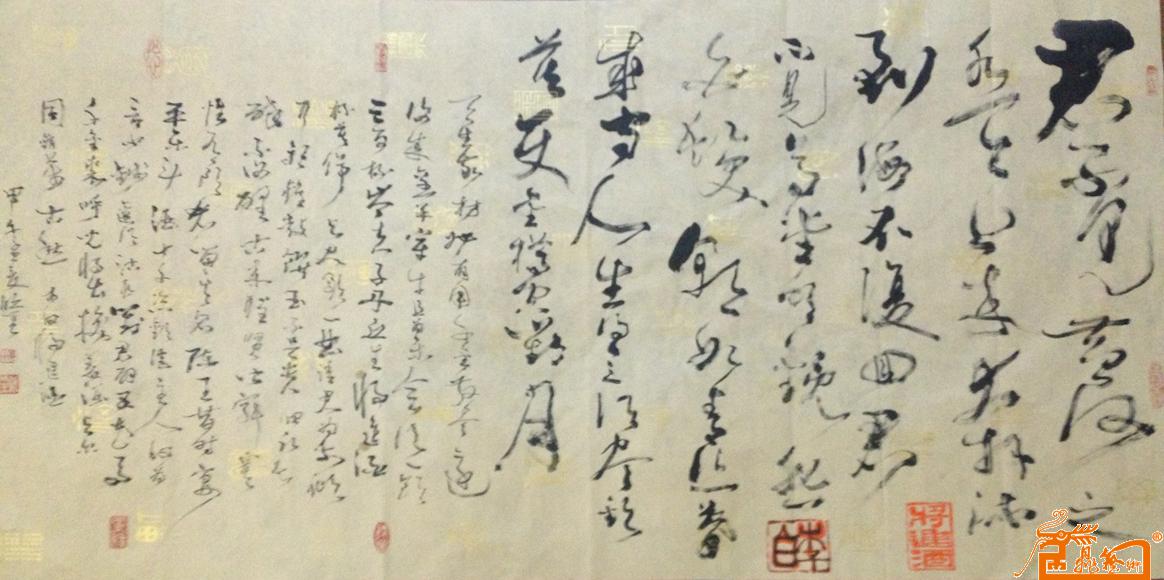 君不見黄河之
水天上来奔流
到海不復回君
不見高堂明鏡悲
白髮朝如青絲暮
成雪人生得意須盡歡
莫使金樽空對月
天生我材必有用千金散盡還
復来烹羊宰牛且為樂會須一飲
三百杯岑夫子丹丘生將進酒
杯莫停與君歌一曲請君為我傾
耳聽鐘鼓饌玉不足貴但願長
醉不復醒古来聖賢皆寂寞
惟有飲者留其名陳王昔時宴
平樂斗酒十千恣歡謔主人何為
言少錢徑須沽取對君酌五花馬
千金裘呼兒將出換美酒與爾
同銷萬古愁 李白將進酒
甲午
將進酒
李白